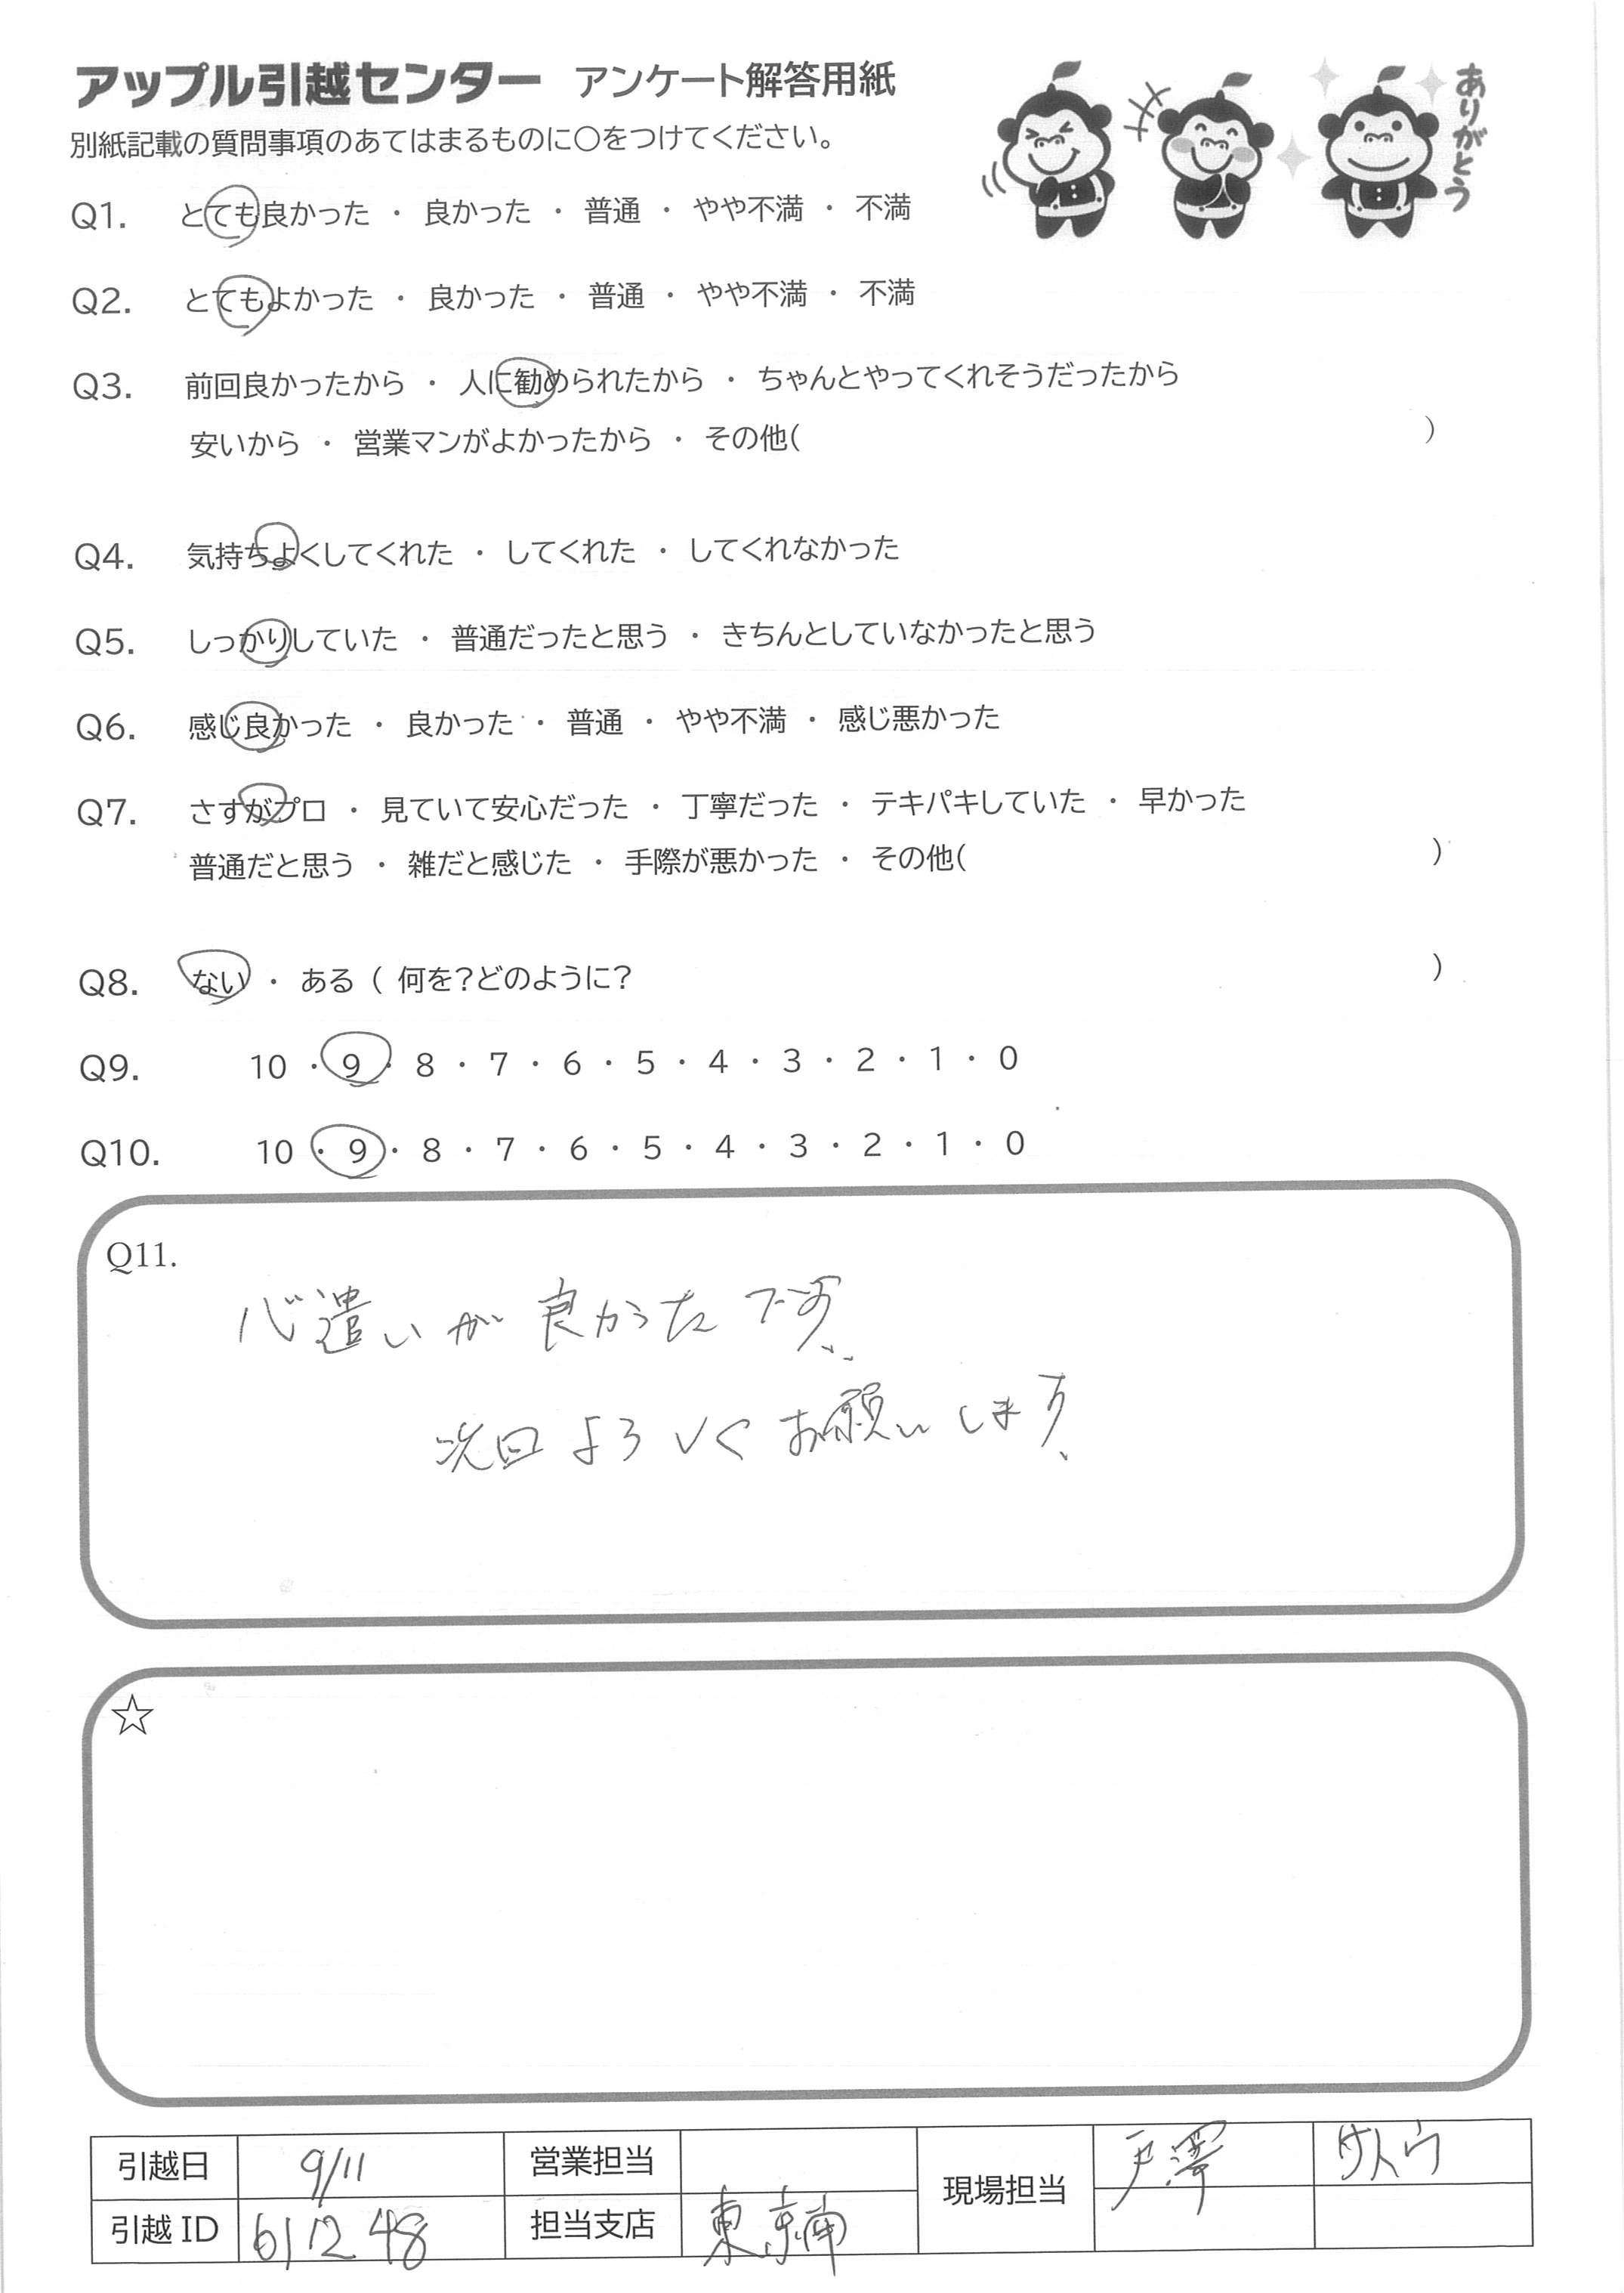 アップル引越センター アンケート解答用紙
ありがとう
別紙記載の質問事項のあてはまるものに○をつけてください。
Q1. とても良かった ・ 良かった ・ 普通 ・ やや不満 ・ 不満
Q2. とてもよかった ・ 良かった ・ 普通 ・ やや不満 ・ 不満
Q3. 前回良かったから ・ 人に勧められたから ・ ちゃんとやってくれそうだったから
安いから ・ 営業マンがよかったから ・ その他( )
Q4. 気持ちよくしてくれた ・ してくれた ・ してくれなかった
Q5. しっかりしていた ・ 普通だったと思う ・ きちんとしていなかったと思う
Q6. 感じ良かった ・ 良かった ・ 普通 ・ やや不満 ・ 感じ悪かった
Q7. さすがプロ ・ 見ていて安心だった ・ 丁寧だった ・ テキパキしていた ・ 早かった
普通だと思う ・ 雑だと感じた ・ 手際が悪かった ・ その他( )
Q8. ない ・ ある ( 何を?どのように? )
Q9. 10 ・ 9 ・ 8 ・ 7 ・ 6 ・ 5 ・ 4 ・ 3 ・ 2 ・ 1 ・ 0
Q10. 10 ・ 9 ・ 8 ・ 7 ・ 6 ・ 5 ・ 4 ・ 3 ・ 2 ・ 1 ・ 0
Q11.
心遣いが良かったです、
次回よろしくお願いします、
☆
引越日 9/11 営業担当 現場担当 戸澤 サトウ
引越ID 611248 担当支店 東京南